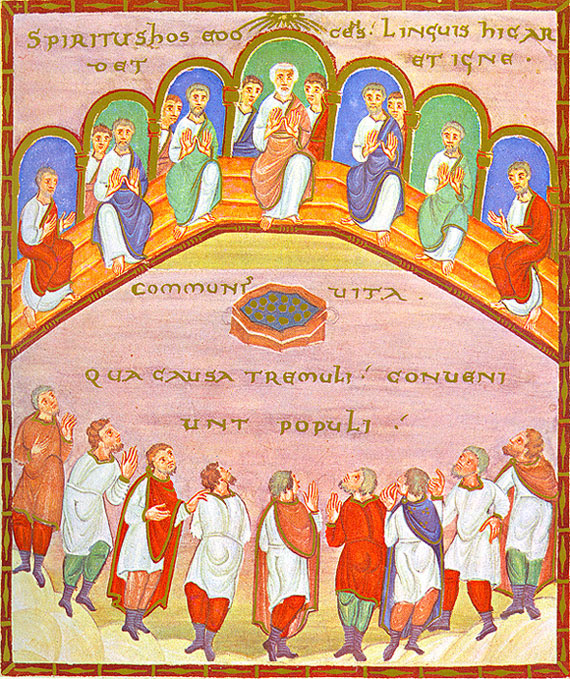 SPIRITUS hOS EDO CENS: LINGUIS hIC AR
DET ET IGNE ·
COMMUNIS UITA .
QUA CAUSA TREMULI: CONUENI
UNT POPULI: